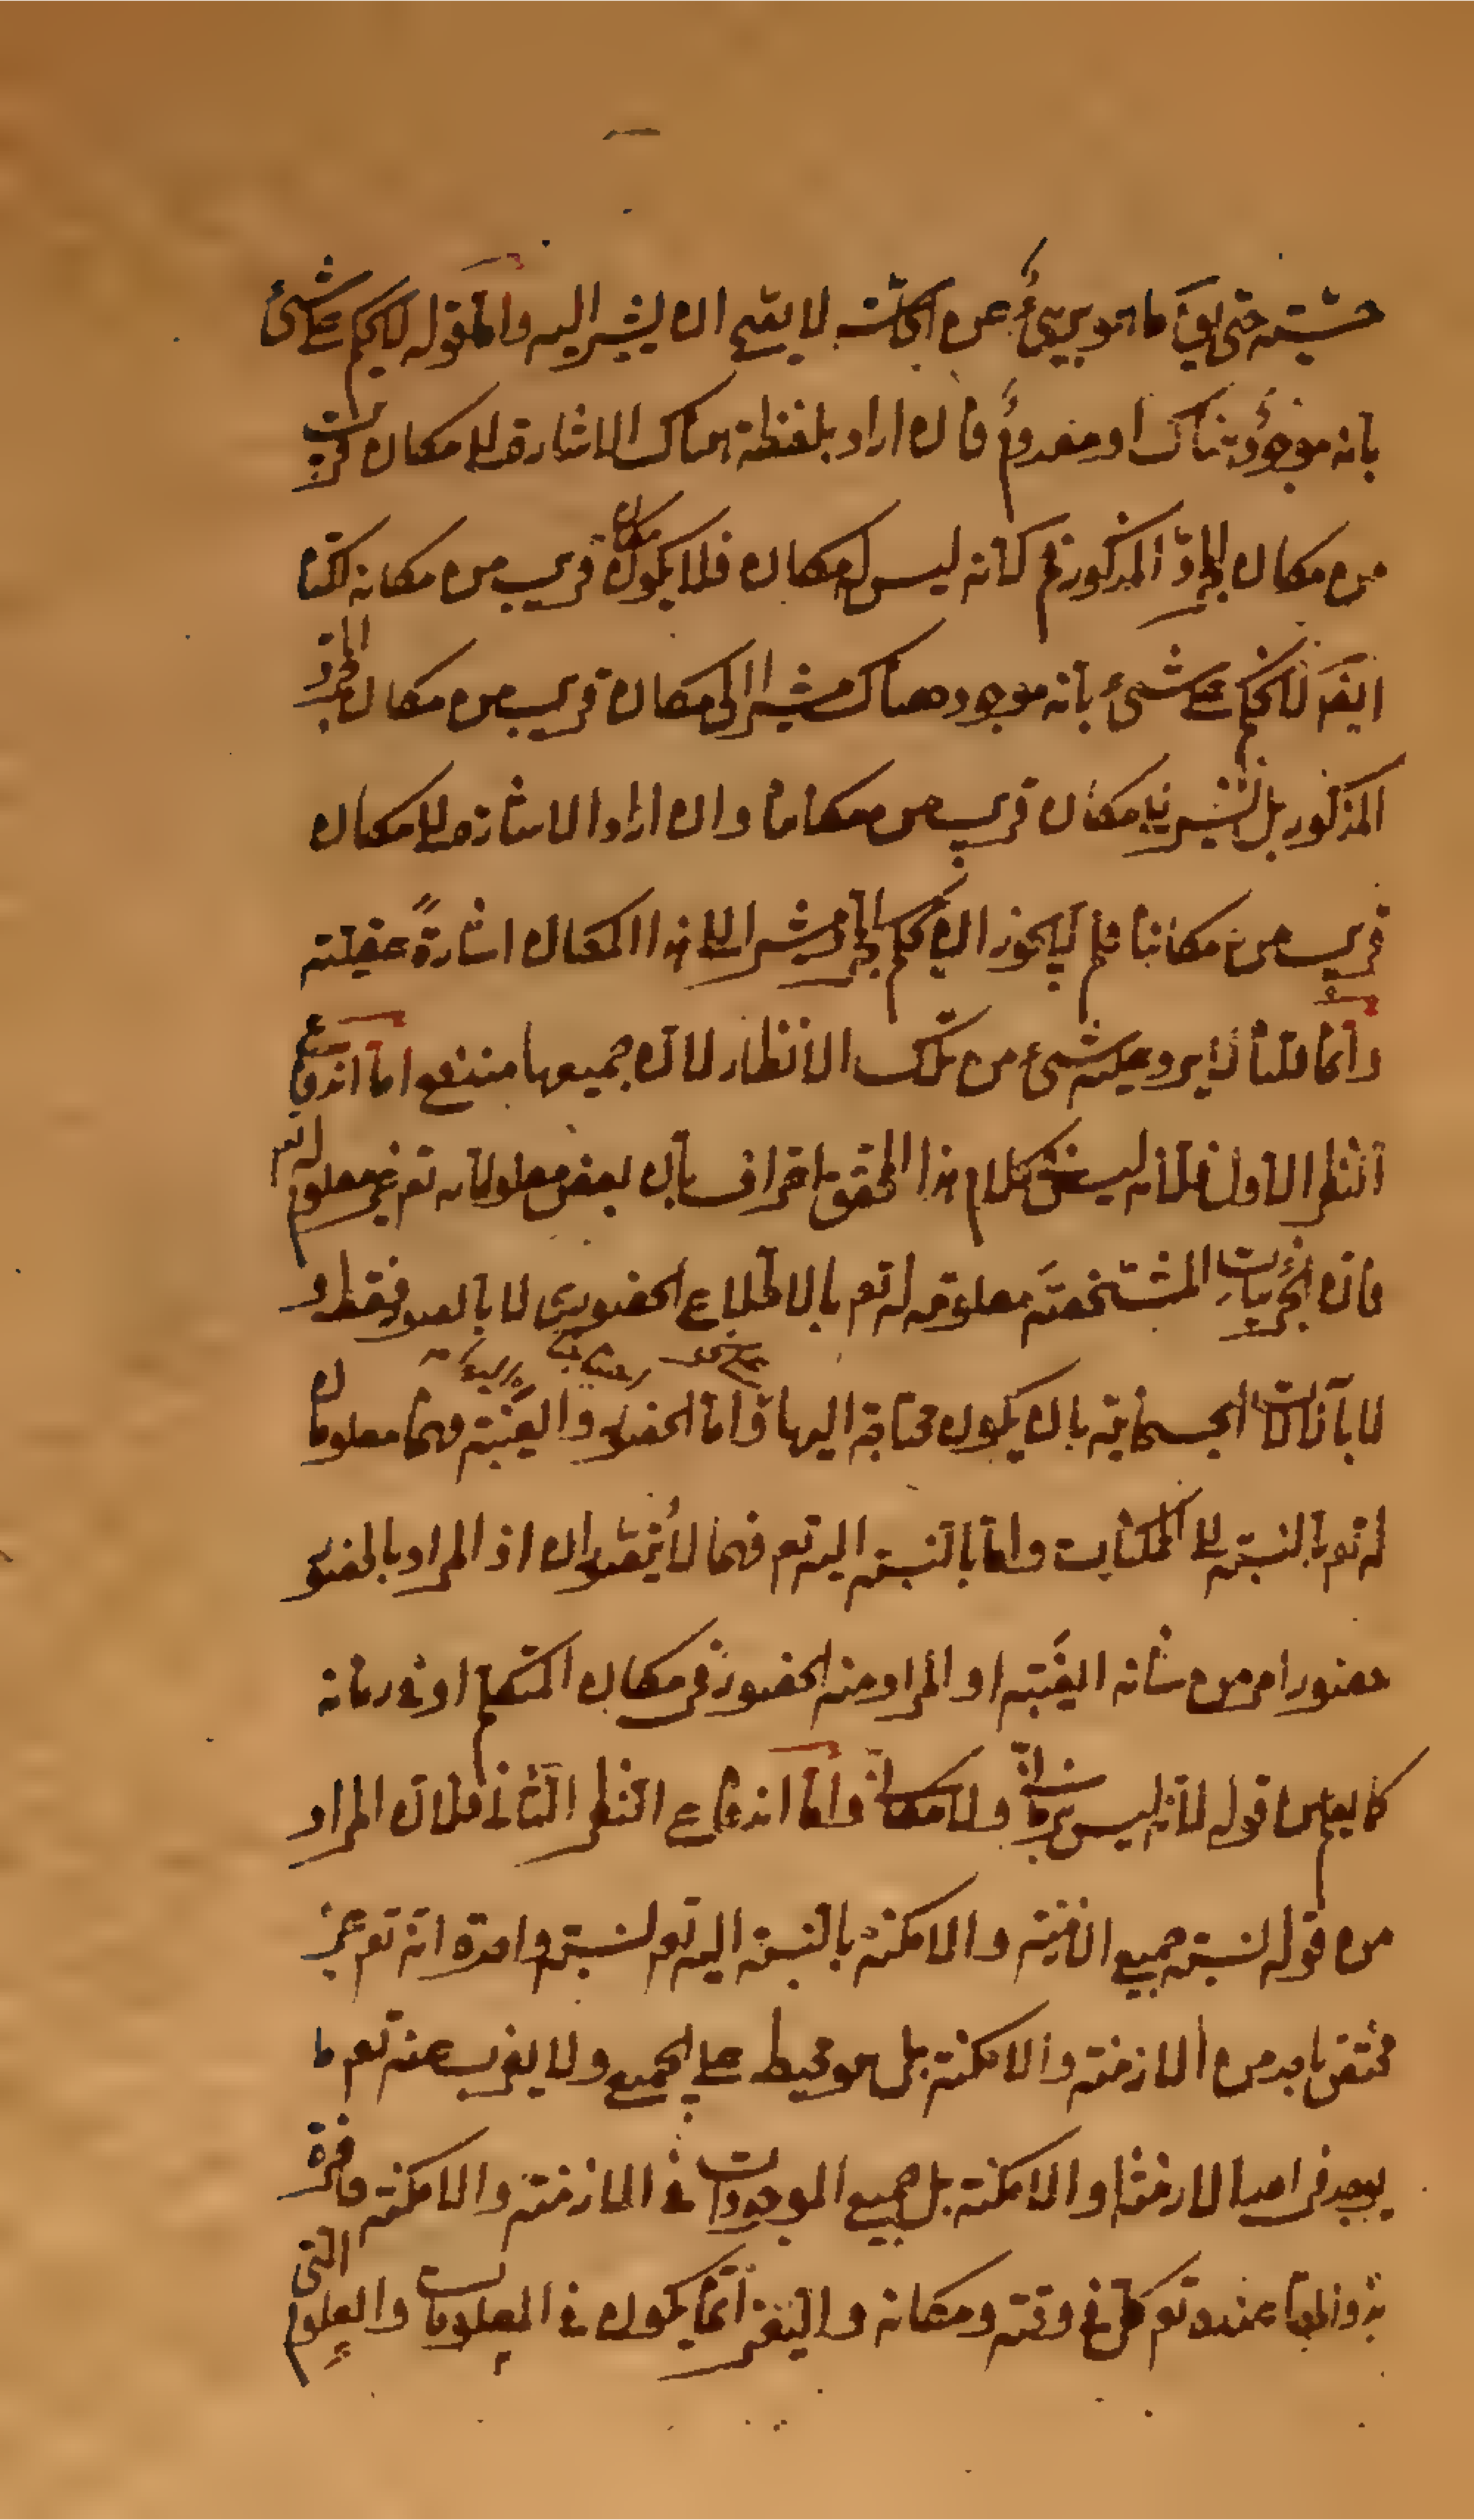 حسّيّة حتى يق ما هو بريئ عن الحاسّة لا يصح ان يشير اليه واما قوله لا يحكم على شئ
بانه موجود هناك او معدوم فان اراد بلفظة هناك الاشارة الى مكان قريب
من مكان المجرد المذكور فم كانه ليس له مكان فلا يكون مكان قريب من مكانه لكنا
ايضا لا نحكم على شئ بانه موجود هناك مشيرا الى مكان قريب من مكان المجرد
المذكور بل نشير الى مكان قريب من مكاننا وان اراد الاشارة الى مكان
قريب من مكاننا فلم لا يجوز ان يحكم المجرد مشيرا الى هذا المكان اشارةً عقليّة
وانما قلنا لا يرد عليه شئ من تلك الانظار لان جميعها مندفع اما اندفاع
النظر الاول فلانه ليس في كلام هذا المحقق اعتراف بان بعض معلولاته تع غير معلوم له تع
فان الجزئيات المتشخصة معلومة له تع بالاطلاع الحضوري لا بالصور فقط و
لا بآلات الجسمانية بان يكون محتاجة اليها واما الحضور والغيبة فهما معلومان
له تع بالنسبة الى الممكنات واما بالنسبة اليه تع فهما لا يتصوران اذ المراد بالحضور
حضور امر من شانه الغيبة او المراد منه الحضور في مكان المتكلم او في زمانه
كما يعلم من قوله لانه ليس بزماني ولا مكاني واما اندفاع النظر الثاني فلان المراد
من قوله نسبة جميع الازمنة والامكنة بالنسبة اليه تع نسبة واحدة انه تع غير
مختص باحد من الازمنة والامكنة بل هو محيط على الجميع ولا يعزب عنه تع ما
يوجد في احد الازمنة او الامكنة بل جميع الموجودات في الازمنة والامكنة حاضرة
بذواتها عنده تع كل في وقته ومكانه والتغير انما يكون في المعلومات والعلوم التي